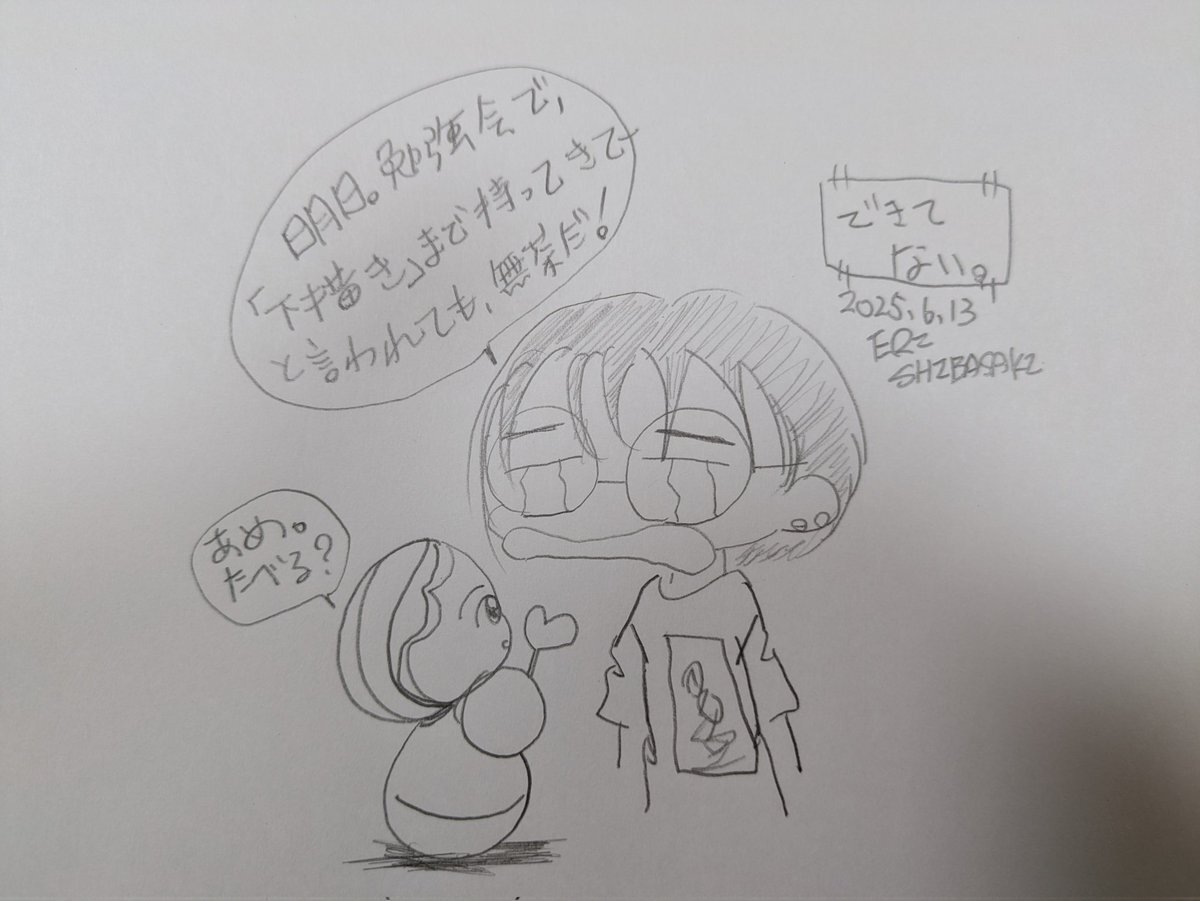 明日。勉強会で、
「下書き」まで持ってきて
と言われても、無茶だ!
できて
ない。
2025.6.13
ERI
SHIBASAKI
あめ。
たべる?